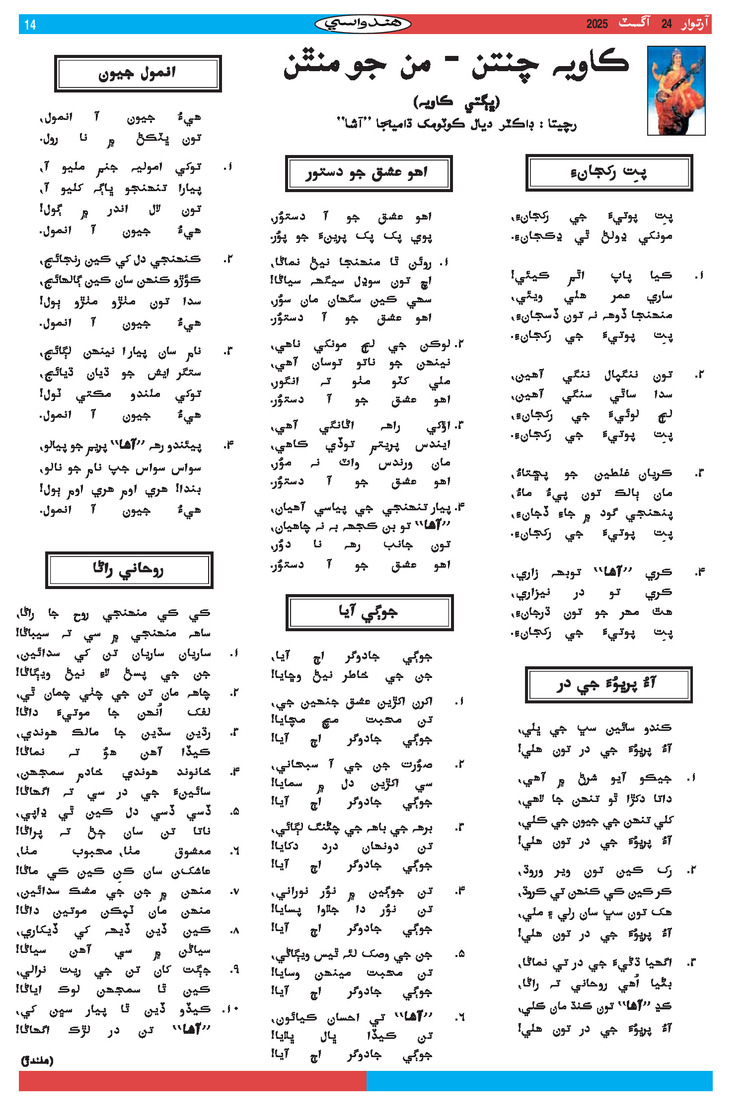 آرتوار 24 آگسٽ 2025
هندواسي
14
ڪاويہ چنتن - من جو منٿن
(ڀڳتي ڪاويہ)
رچيتا : ڊاڪٽر ديال ڪوٽومڪ ڌاميڄا ’’آشا‘‘
پتِ رکجانءِ
پتِ پوتيءَ جي رکجانءِ،
مونکي ڍولڻ ٿي ڍڪجانءِ.
۱. ڪيا پاپ اٿم ڪيئي!
ساري عمر هلي ويئي،
منهنجا ڏوهہ نہ تون ڏسجانءِ،
پتِ پوتيءَ جي رکجانءِ.
۲. تون ننگپال ننگي آهين،
سدا ساٿي سنگي آهين،
لڄ لوئيءَ جي رکجانءِ،
پتِ پوتيءَ جي رکجانءِ.
۳. ڪريان غلطين جو پڇتاءُ،
مان ٻالڪ تون پيءُ ماءُ،
پنهنجي گود ۾ جاءِ ڏجانءِ،
پتِ پوتيءَ جي رکجانءِ.
۴. ڪري ’’آشا‘‘ توبهہ زاري،
ڪري تو در نيزاري،
هٿ مهر جو تون ڌرجانءِ،
پتِ پوتيءَ جي رکجانءِ.
آءٌ پرڀوءَ جي در
ڪندو سائين سڀ جي ڀلي،
آءٌ پرڀوءَ جي در تون هلي!
۱. جيڪو آيو شرڻ ۾ آهي،
داتا دکڙا ٿو تنهن جا لاهي،
کلي تنهن جي جيون جي ڪلي،
آءٌ پرڀوءَ جي در تون هلي!
۲. رک ڪين تون وير وروڌ،
ڪر ڪين ڪي ڪنهن تي ڪروڌ،
هڪ تون سڀ سان رلي ۽ ملي،
آءٌ پرڀوءَ جي در تون هلي!
۳. اگهيا ڌڻيءَ جي در تي نماڻا،
بڻيا اُهي روحاني تہ راڻا،
ڪڍ ’’آشا‘‘ تون ڪنڌ مان ڪلي،
آءٌ پرڀوءَ جي در تون هلي!
اهو عشق جو دستور
اهو عشق جو آ دستوُر،
پوي پڪ پڪ پرينءَ جو پوُر.
۱. روئن ٿا منهنجا نيڻ نماڻا،
اچ تون سوڍل سيگهہ سياڻا!
سهي ڪين سگهان مان سوُر،
اهو عشق جو آ دستوُر.
۲. لوڪن جي لڄ مونکي ناهي،
نينهن جو ناتو توسان آهي،
ملي کٽو مٺو تہ انگور،
اهو عشق جو آ دستوُر.
۳. اؤکي راهہ اڻانگي آهي،
ايندس پريتم توڏي ڪاهي،
مان ورندس واٽ نہ موُر،
اهو عشق جو آ دستوُر.
۴. پيار تنهنجي جي پياسي آهيان،
’’آشا‘‘ تو بن ڪجهہ بہ نہ چاهيان،
تون جانب رهہ نا دوُر،
اهو عشق جو آ دستوُر.
جوڳي آيا
جوڳي جادوگر اڄ آيا،
جن جي خاطر نيڻ وڇايا!
۱. اکرن اکڙين عشق جنهين جي،
تن محبت مچ مچايا!
جوڳي جادوگر اڄ آيا!
۲. صوُرت جن جي آ سبحاني،
سي اکڙين دل ۾ سمايا!
جوڳي جادوگر اڄ آيا!
۳. برهہ جي باهہ جي چڻنگ لڳائي،
تن دونهان درد دکايا!
جوڳي جادوگر اڄ آيا!
۴. تن جوڳين ۾ نوُر نوراني،
تن نوُر دا جلاوا پسايا!
جوڳي جادوگر اڄ آيا!
۵. جن جي وصڪ لئہ ٿيس ويڳاڻي،
تن محبت مينهن وسايا!
جوڳي جادوگر اڄ آيا!
۶. ’’آشا‘‘ تي احسان ڪيائون،
تن ڪيڏا ڀال ڀلايا!
جوڳي جادوگر اڄ آيا!
انمول جيون
هيءُ جيون آ انمول،
تون ڀٽڪڻ ۾ نا رول.
۱. توکي اموليہ جنم مليو آ،
پيارا تنهنجو ڀاڳہ کليو آ،
تون لال اندر ۾ ڳول!
هيءُ جيون آ انمول.
۲. ڪنهنجي دل کي ڪين رنجائج،
ڪوُڙو ڪنهن سان ڪين ڳالهائج،
سدا تون مٺڙو مٺڙو ٻول!
هيءُ جيون آ انمول.
۳. نام سان پيارا نينهن لڳائج،
ستگر ايش جو ڌيان ڌيائج،
توکي ملندو مڪتي ٽول!
هيءُ جيون آ انمول.
۴. پيئندو رهہ ’’آشا‘‘ پريم جو پيالو،
سواس سواس جپ نام جو نالو،
بندا! هري اوم هري اوم ٻول!
هيءُ جيون آ انمول.
روحاني راڻا
ڪي ڪي منهنجي روح جا راڻا،
ساهہ منهنجي ۾ سي تہ سيباڻا!
۱. ساريان ساريان تن کي سدائين،
جن جي پسڻ لاءِ نيڻ ويڳاڻا!
۲. چاهہ مان تن جي چٺي چمان ٿي،
لفظ اُنهن جا موتيءَ داڻا!
۳. رڌين سڌين جا مالڪ هوندي،
ڪيڏا آهن هوُ تہ نماڻا!
۴. خانوند هوندي خادم سمجهن،
سائينءَ جي در سي تہ اگهاڻا!
۵. ڏسي ڏسي دل ڪين ٿي ڍاپي،
ناتا تن سان ڄڻ تہ پراڻا!
۶. معشوق مٺا، محبوب مٺا،
عاشڪن سان ڪن ڪين ڪي ماڻا!
۷. منهن ۾ جن جي مشڪ سدائين،
منهن مان ٽپڪن موتين داڻا!
۸. ڪين ڏين ڏيهہ کي ڏيکاري،
سياڻن ۾ سي آهن سياڻا!
۹. جڳت کان تن جي ريت نرالي،
ڪين ٿا سمجهن لوڪ اياڻا!
۱۰. ڪيڏو ڏين ٿا پيار سڀن کي،
’’آشا‘‘ تن در لڙڪ اگهاڻا!
(هلندڙ)